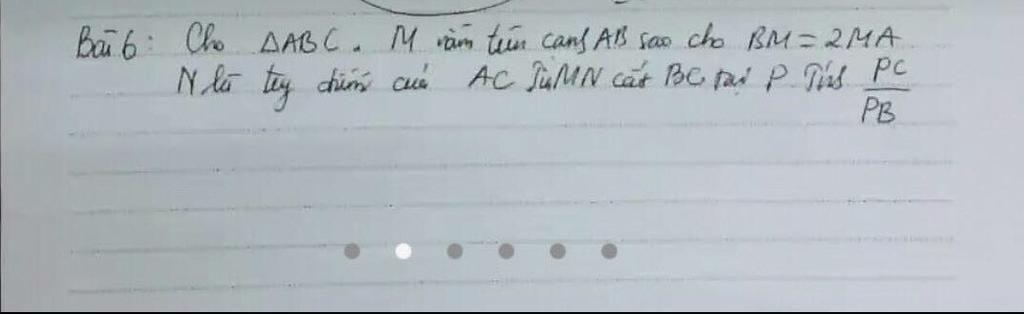 Bài 6: Cho ΔABC. M nằm trên cạnh AB sao cho BM = 2MA
N là trung điểm của AC Tia MN cắt BC tại P. Tính PC/PB